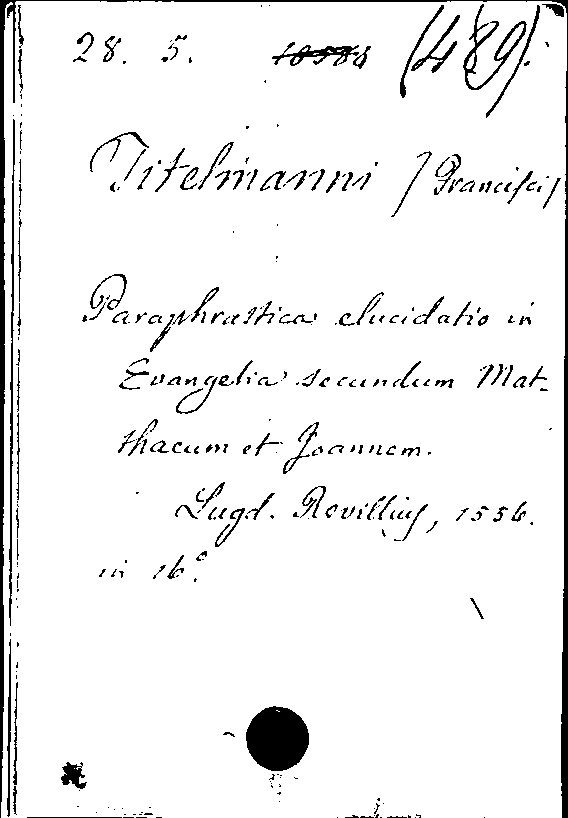 28. 5. (489).
Titelmanni / Francisci /
Paraphrastica elucidatio in
Evangelia secundum Mat-
thaeum et Joannem.
Lugd. Rovillius, 1556.
in 16°.